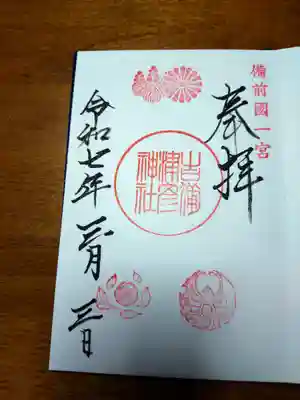 備前國一宮
奉拝
吉備津彦神社
令和七年三月三日